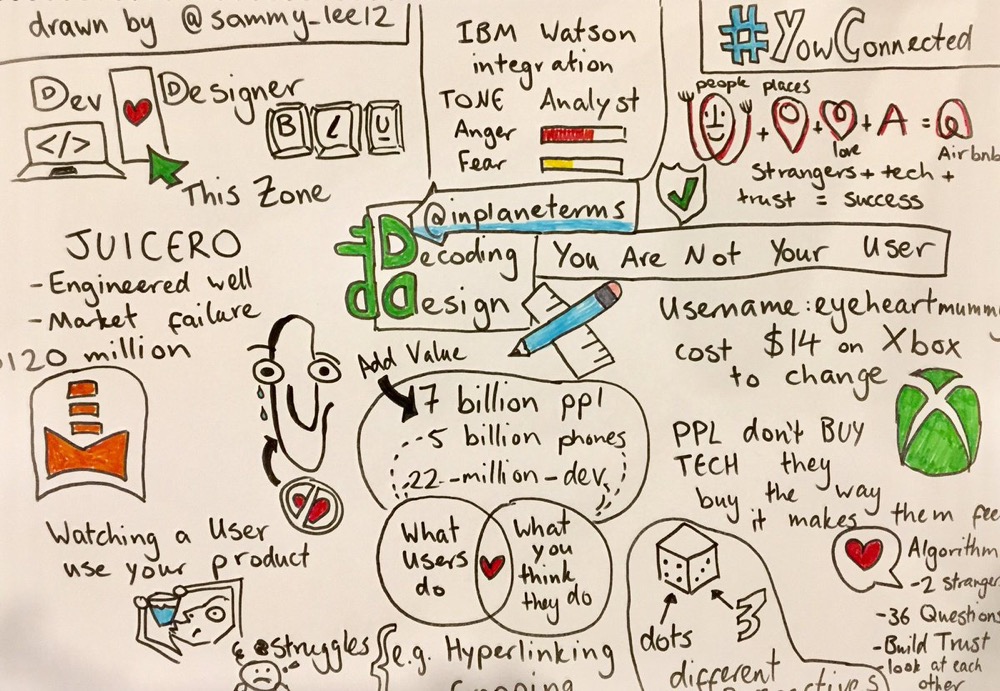 drawn by @sammy_lee12
Dev
Designer
</>
B I U
This Zone
IBM Watson
integration
TONE Analyst
Anger
Fear
#YowConnected
people places
+ + + A =
love
Airbnb
Strangers + tech +
trust = success
@inplaneterms
Decoding
design
You Are Not Your User
JUICERO
- Engineered well
- Market failure
120 million
Add Value
7 billion ppl
5 billion phones
22-million-dev
What
Users
do
What
you
think
they do
Username: eyeheartmummy
cost $14 on Xbox
to change
PPL don't BUY
TECH they
buy the way
it makes them feel
Watching a User
use your product
struggles
e.g. Hyperlinking
dots
3
different
Algorithm
- 2 strangers
- 36 Questions
- Build Trust
- look at each
other